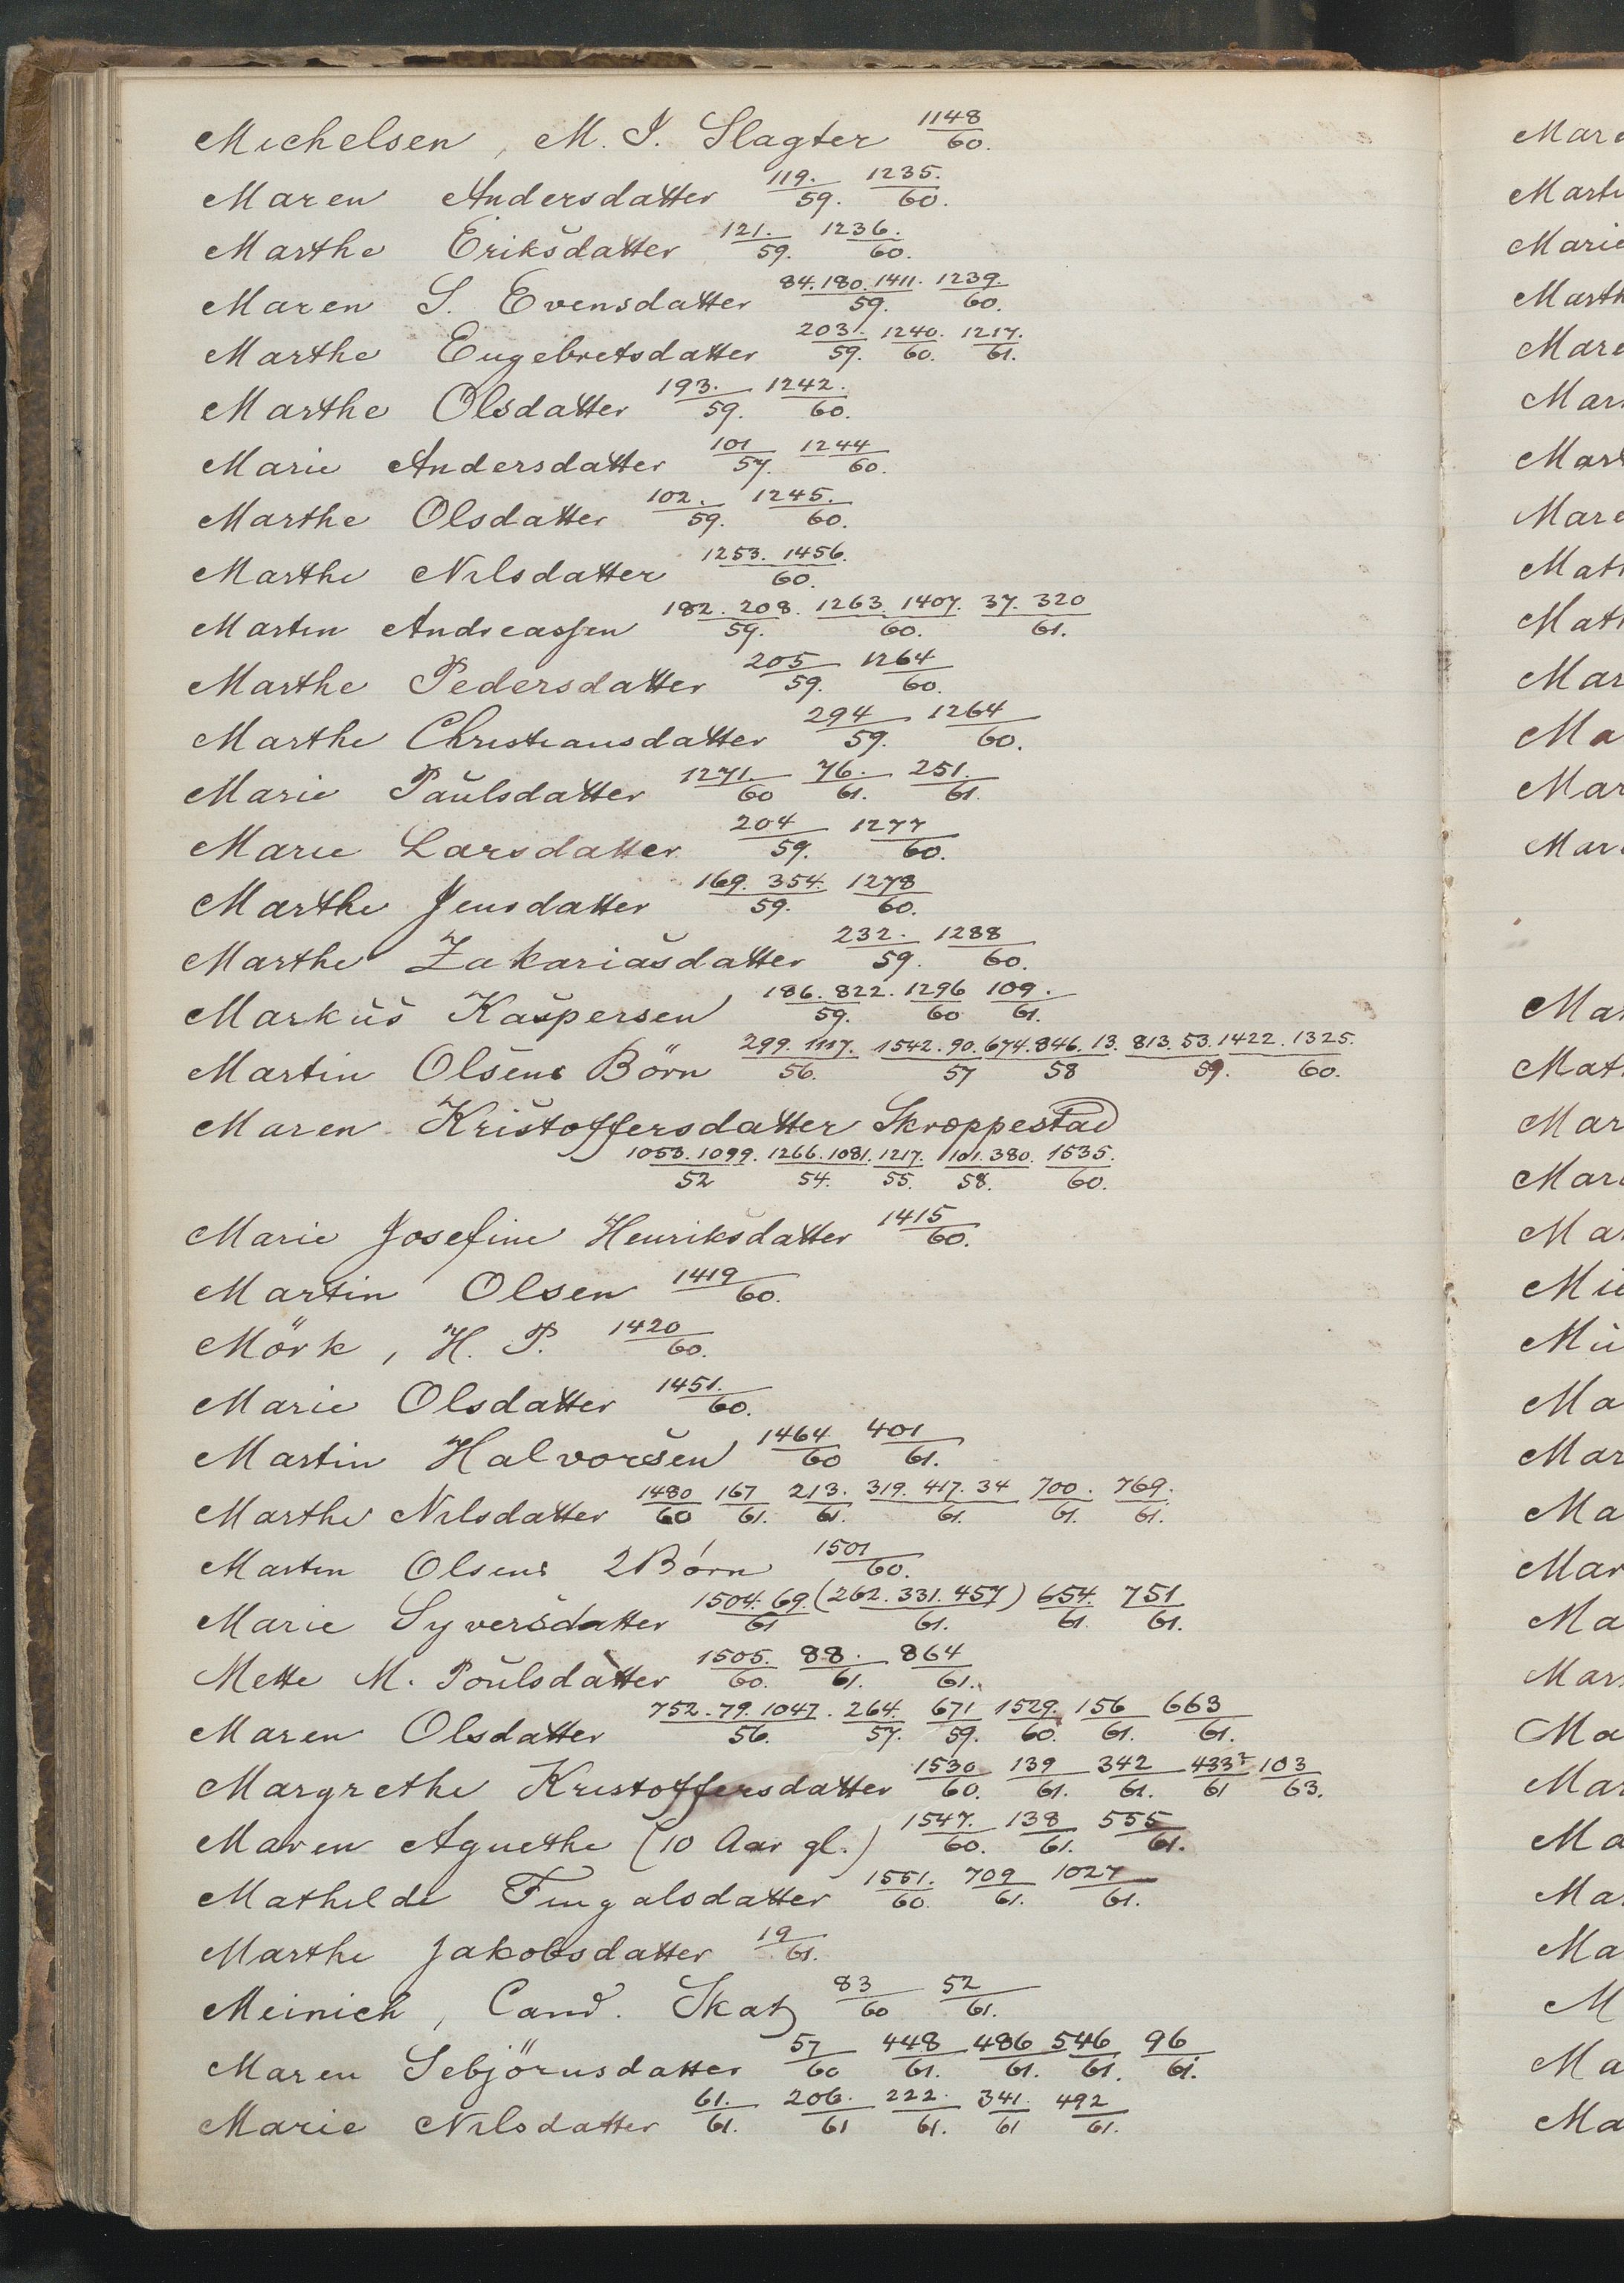 Michelsen, M. I. Slagter 1148/60.
Maren Andersdatter 119./59. 1235./60.
Marthe Eriksdatter 121./59. 1236./60.
Maren S. Evensdatter 84.180.1411./59. 1239./60.
Marthe Engebretsdatter 203./59. 1240./60. 1217./61.
Marthe Olsdatter 193./59. 1242./60.
Marie Andersdatter 101/57. 1244/60.
Marthe Olsdatter 102./59. 1245./60.
Marthe Nilsdatter 1253. 1456./60.
Martin Andreassen 182. 208./59. 1263. 1407./60. 37. 320/61.
Marthe Pedersdatter 205/59. 1264/60.
Marthe Christiansdatter 294/59. 1264/60.
Marie Paulsdatter 1271./60 76./61. 251./61.
Marie Larsdatter 204/59. 1277/60.
Marthe Jensdatter 169. 354./59. 1278/60.
Marthe Zakariasdatter 232./59. 1288/60.
Markus Kaspersen 186. 822./59. 1296/60 109./61.
Martin Olsens Börn 299. 1117./56. 1542. 90./57 674. 846. 13./58 813. 53. 1422./59. 1325./60.
Maren Kristoffersdatter Skroppestad
1053. 1099./52 1266. 1081./54. 1217./55. 101. 380./58. 1535./60.
Marie Josefine Henriksdatter 1415/60.
Martin Olsen 1419/60.
Mörk, H. P. 1420/60.
Marie Olsdatter 1451./60.
Martin Halvorsen 1464/60 401/61.
Marthe Nilsdatter 1480/60 167/61. 213./61. 319. 417. 34/61. 700./61. 769./61.
Martin Olsens 2 Börn 1501/60.
Marie Syversdatter 1504. 69./61 (262. 331. 457)/61. 654./61. 751/61.
Mette M. Poulsdatter 1505./60. 88./61. 864/61.
Maren Olsdatter 752. 79. 1047./56. 264./57. 671/59. 1529./60. 156/61. 663/61.
Margrethe Kristoffersdatter 1530/60. 139/61. 342/61. 433/61 103/63.
Maren Agnethe (10 Aar gl.) 1547./60. 138/61. 555/61.
Mathilde Fingalsdatter 1551./60. 709/61. 1027/61.
Marthe Jakobsdatter 19/61.
Meinich, Cand. Skatz 83/60 52/61.
Maren Sebjörnsdatter 57/60 448/61. 486/61. 546/61. 96/61.
Marie Nilsdatter 61./61. 206./61 222./61. 341./61 492/61.